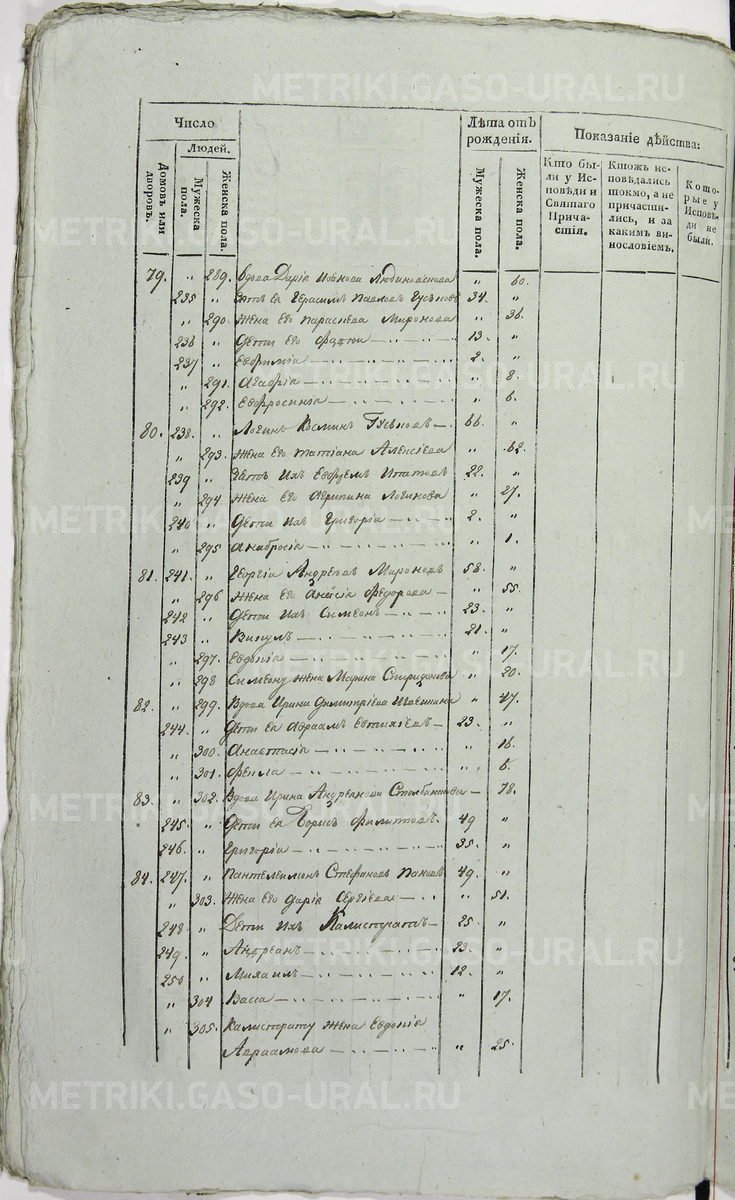 Число
Людей.
Домовъ или дворовъ.
Мужеска пола.
Женска пола.
Лѣта отъ рожденія.
Мужеска пола.
Женска пола.
Показаніе дѣйства:
Кто бы-
ли у Ис-
повѣди и
Святаго
Прича-
стія.
Ктожъ ис-
повѣдались
токмо, а не
причасти-
лись, и за
какимъ ви-
нословіемъ.
Кото-
рые у
Исповѣ-
ди не
были.
79. " 289. Вдова Дарія Иванова " 60.
235 " Зять ея Герасимъ Павловъ Гусѣновъ 34. "
" 290 Жена его Параскева Миронова " 36.
236 " Дѣти его 13. "
237 " Евфимія 2. "
" 291. Агафія " 8.
" 292. Евфросинія " 6.
80. 238. " Логинъ Козминъ Гусѣновъ 66. "
" 293. Жена его Татіана Алексѣева " 62.
239 " Зять ихъ Ипатовъ 22. "
" 294 Жена его Агрипина Логинова " 27.
240 " Дѣти ихъ Григорій 2. "
" 295 " 1.
81. 241. " Георгій Андреевъ Мироновъ 58. "
" 296 Жена его Анисія Федорова " 55.
242 " Дѣти ихъ Симеонъ 23. "
243 " Викулъ 21. "
" 297. Евдокія " 17.
" 298 Симеону жена Марина Спиридонова " 20.
82. " 299. Вдова Ирина Димитріева " 47.
244. " Дѣти ея Авраамъ 23. "
" 300. Анастасія " 16.
" 301. Фекла " 6.
83. " 302. Вдова Ирина Андреянова " 78.
245. " Дѣти ея Борисъ Филиповъ 49 "
246. " Григорій 35. "
84. 247. " Пантелеимонъ Стефановъ Пановъ 49. "
" 303. Жена его Дарія Сергіева " 51.
248. " Дѣти ихъ Калистратъ 25 "
249. " Андреанъ 23. "
250 " Михаилъ 12. "
" 304 Васса " 17.
" 305. Калистрату жена Евдокія
Авраамова " 25.
METRIKI.GASO-URAL.RU